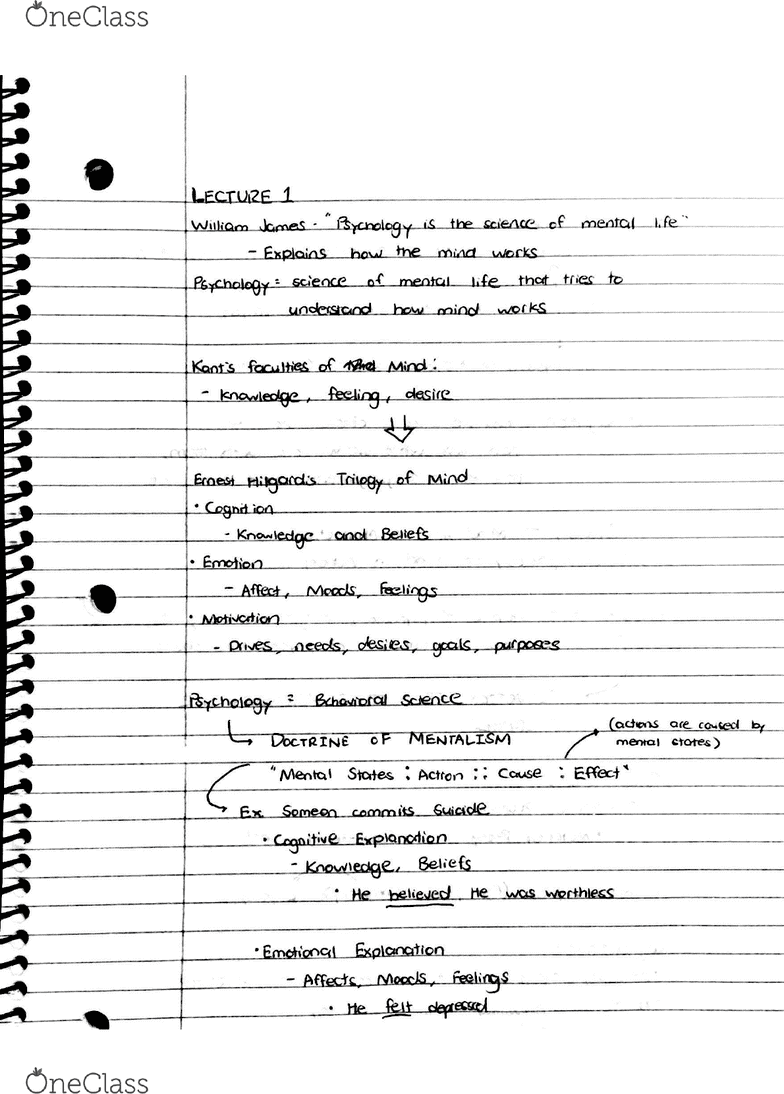 OneClass
LECTURE 1
William James - "Psychology is the science of mental life"
- Explains how the mind works
Psychology = science of mental life that tries to
understand how mind works
Kant's faculties of Mind:
- Knowledge, feeling, desire
Ernest Hilgard's Trilogy of Mind
• Cognition
- Knowledge and Beliefs
• Emotion
- Affect, Moods, Feelings
• Motivation
- Drives, needs, desires, goals, purposes
Psychology = Behavioral Science
DOCTRINE OF MENTALISM
(actions are caused by
mental states)
"Mental States : Action :: Cause : Effect"
Ex. Someon commits Suicide
• Cognitive Explanation
- Knowledge, Beliefs
• He believed He was worthless
• Emotional Explanation
- Affects, Moods, Feelings
• He felt depressed
OneClass